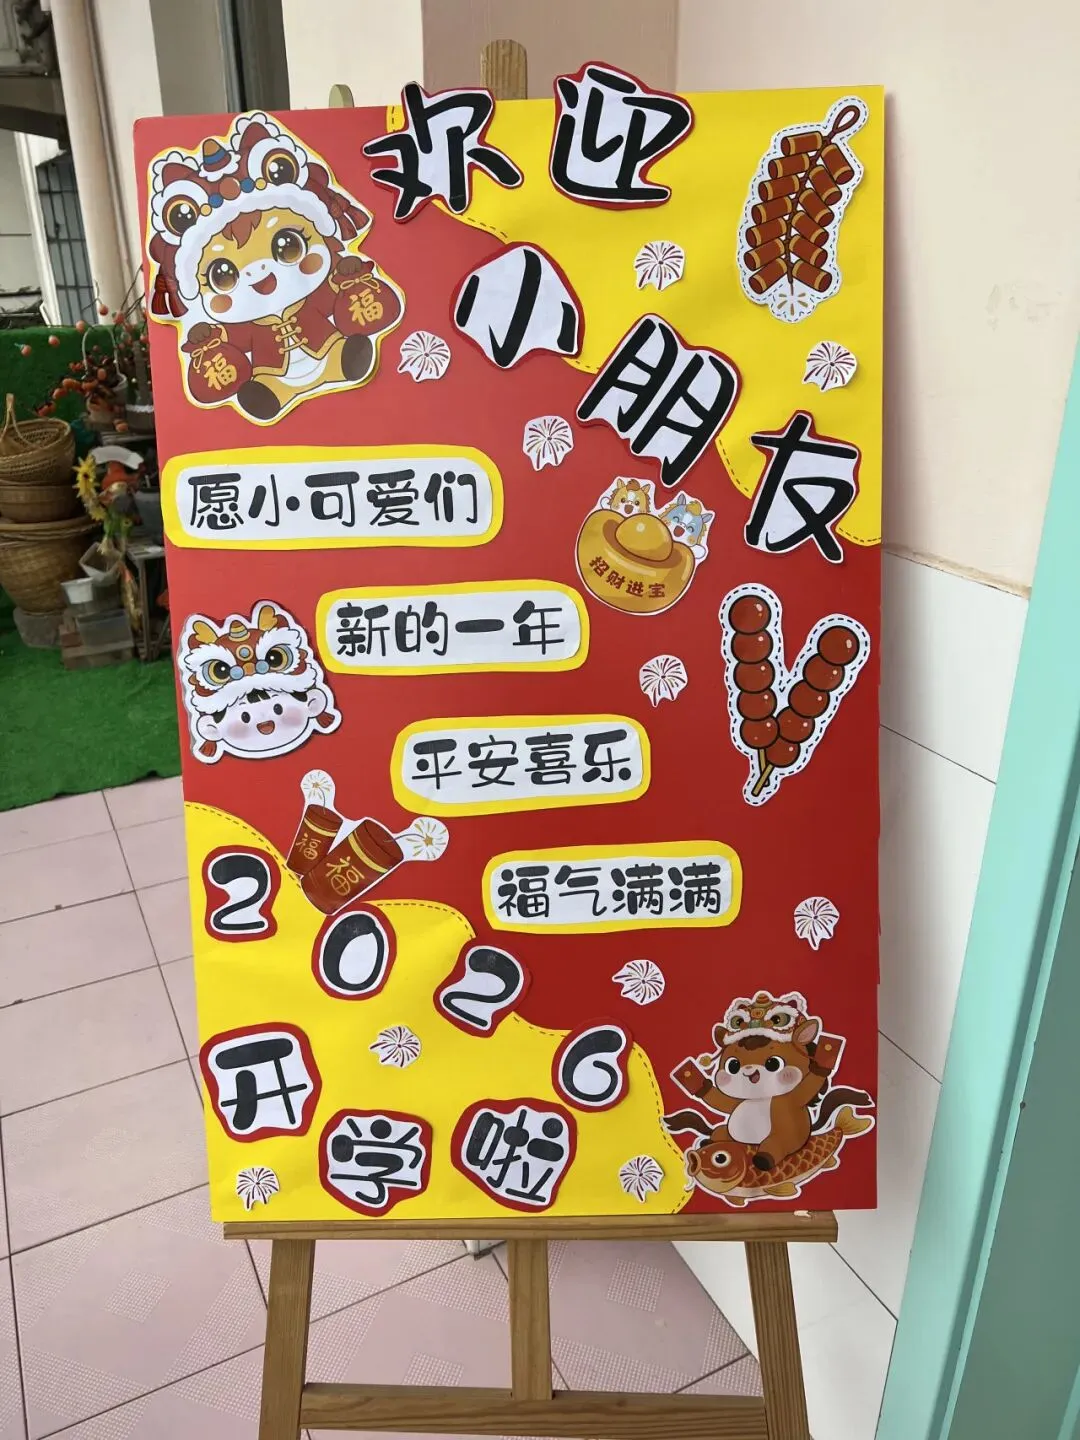 欢迎
小朋友
福
福
愿小可爱们
招财进宝
新的一年
平安喜乐
福
福
福气满满
2026
开学啦